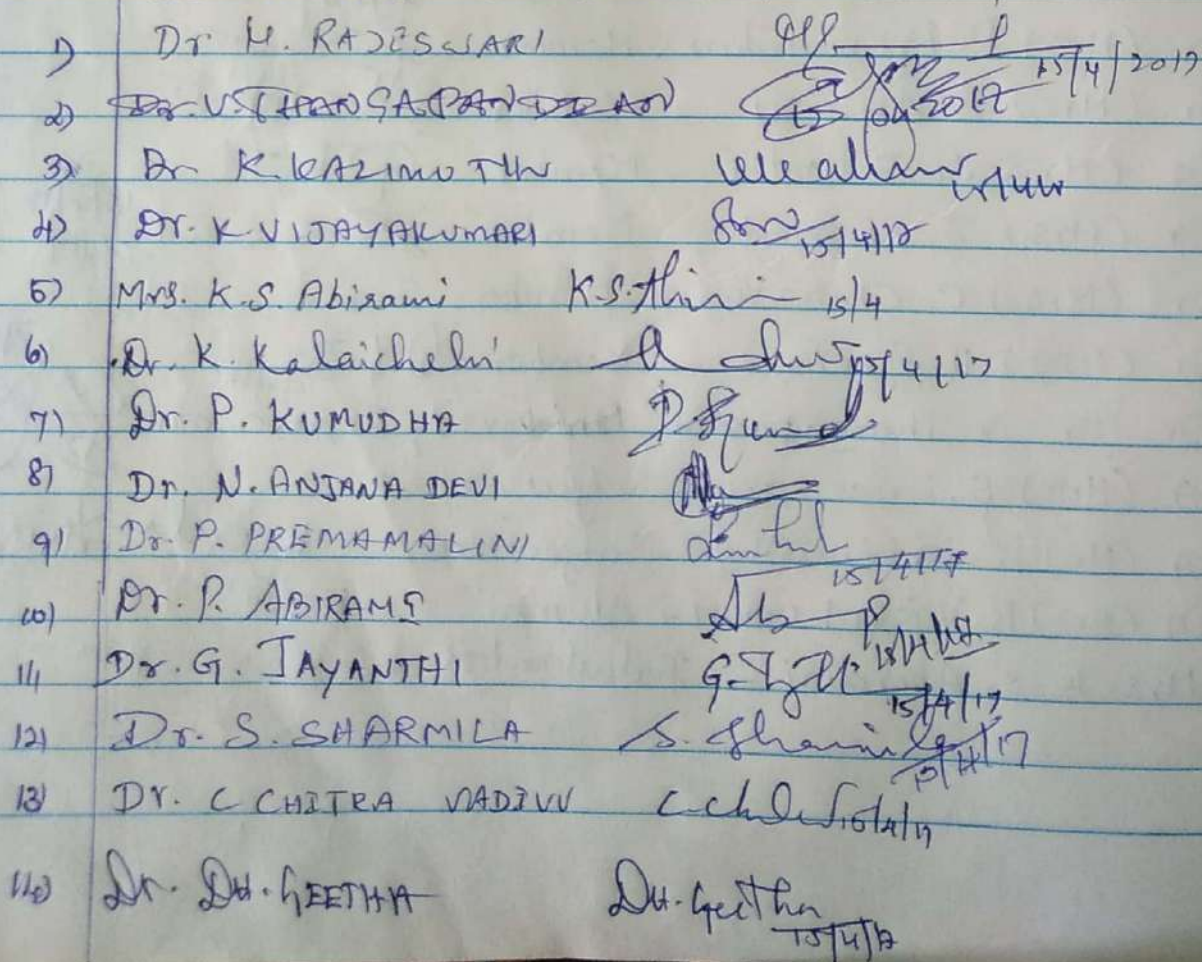 1) Dr M. RAJESWARI 15/4/2017
2) Dr. V. THANGAPANDIAN 15/04/2017
3) Dr K. KALIMOTHU
4) Dr. K. VIJAYAKUMARI 15/4/17
5) Mrs. K.S. Abirami K.S. Abirami 15/4
6) Dr. K. Kalaichelvi 15/4/17
7) Dr. P. KUMUDHA P. Kumud
8) Dr. N. ANJANA DEVI
9) Dr. P. PREMAMALINI 15/4/17
10) Dr. P. ABIRAMI 15/4/17
11) Dr. G. JAYANTHI 15/4/17
12) Dr. S. SHARMILA S. Sharmila 15/4/17
13) Dr. C CHITRA VADIVU 15/4/17
14) Dr. DH. GEETHA DH. Geetha 15/4/17